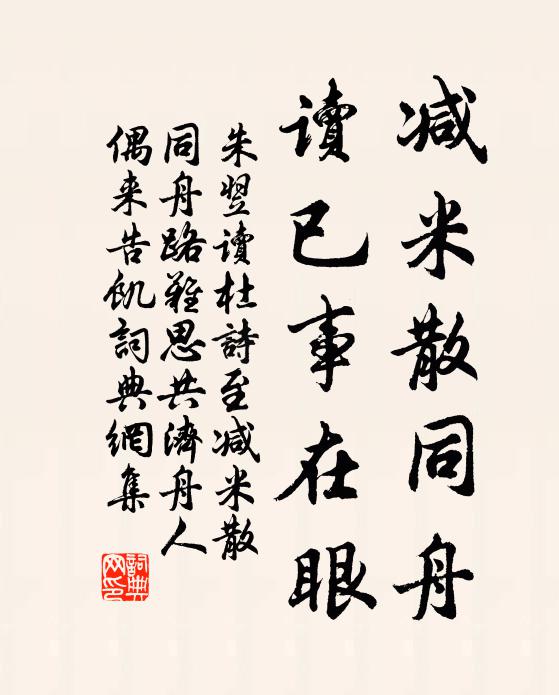 减米散同舟
读已事在眼
朱翌读杜詩至减米散
同舟路難思共濟舟人
偶来告飢詞典網集
詞典网印